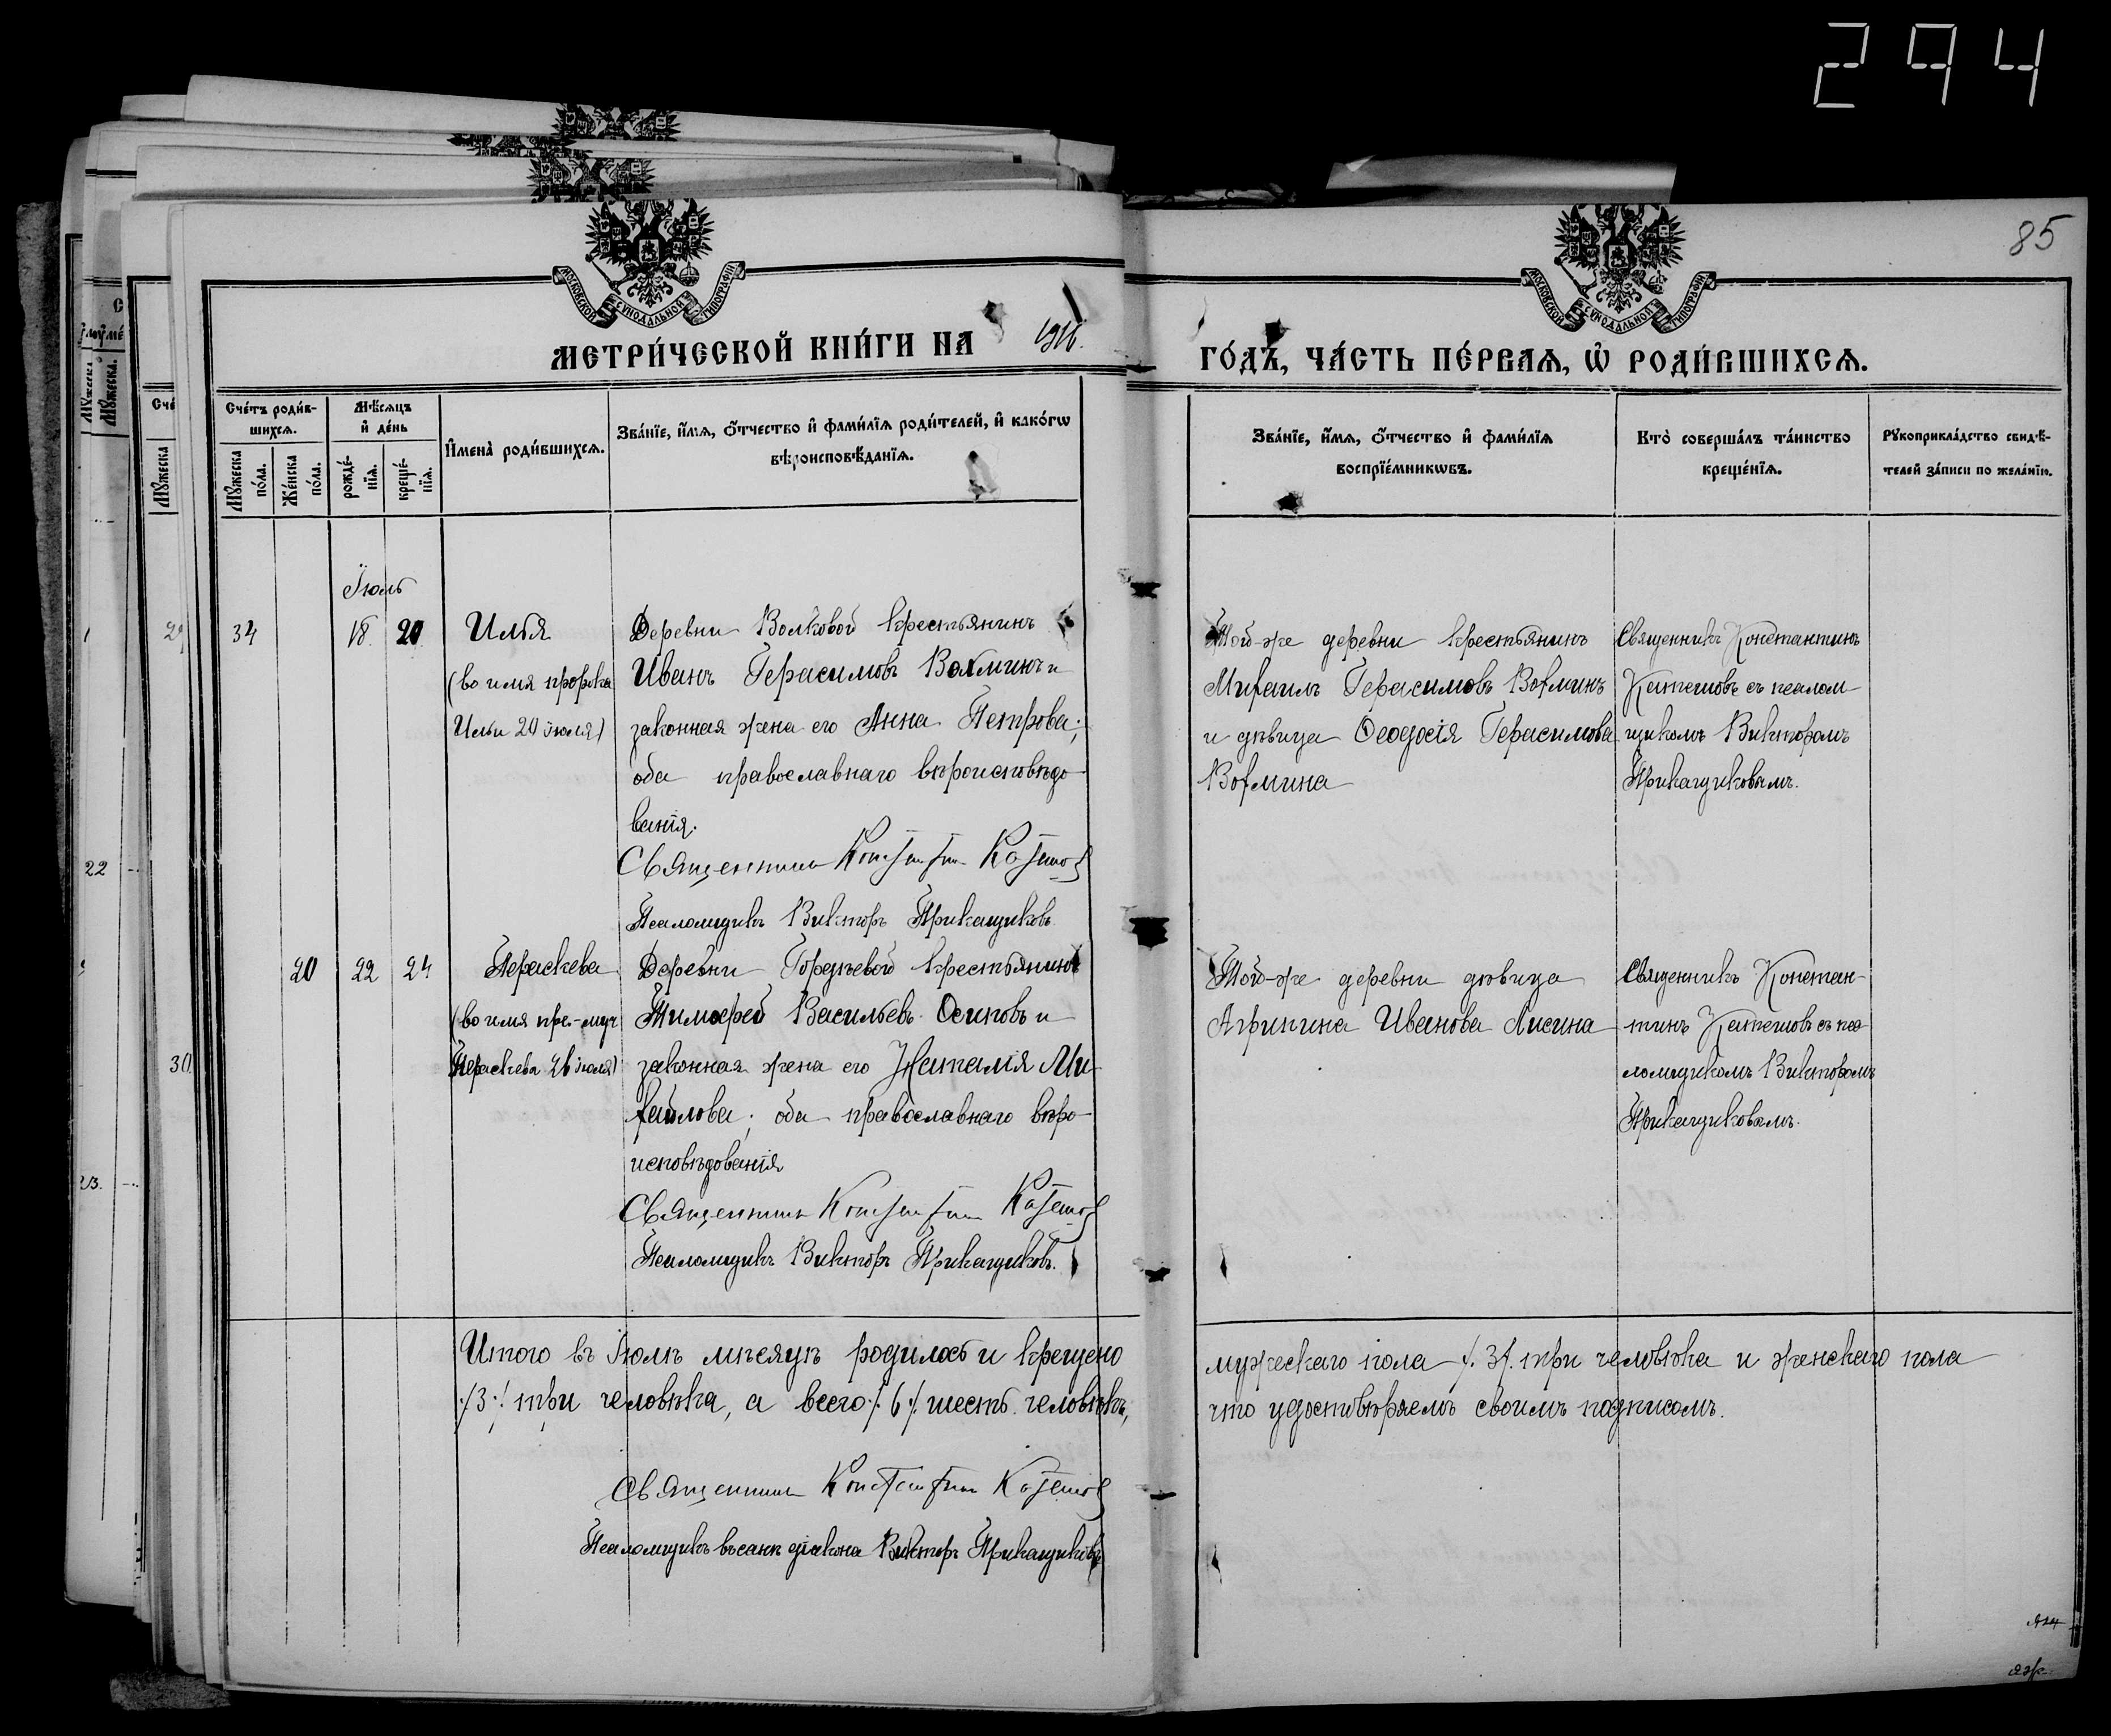 294
85
МОСКОВСКОЙ СѴНОДАЛЬНОЙ ТИПОГРАФІИ
МОСКОВСКОЙ СѴНОДАЛЬНОЙ ТИПОГРАФІИ
МЕТРИ́ЧЕСКОЙ КНИ́ГИ НА 1916.
ГО́ДЪ, ЧА́СТЬ ПЕ́РВАЯ, Ѡ҆ РОДИ́ВШИХСЯ.
Сче́тъ роди́в-
шихся.
Мѣ́сяцъ
и҆ де́нь
Мꙋ́жеска
по́ла.
Же́нска
по́ла.
рожде́-
нїя.
креще́-
нїя.
И҆мена̀ роди́вшихся.
Зва́нїе, и҆́мя, ѻ҆́тчество и҆ фами́лїя роди́телей, и҆ како́гѡ
вѣроисповѣ́данїя.
Зва́нїе, и҆́мя, ѻ҆́тчество и҆ фами́лїя
воспрїе́мникѡвъ.
Кто̀ соверша́лъ та́инство
креще́нїя.
Рꙋкоприкла́дство свидѣ́-
телей за́писи по жела́нїю.
Іюль
34 18. 20. Илья
(во имя пророка
Ильи 20 іюля)
Деревни Волковой крестьянинъ
Иванъ Герасимовъ Вохминъ и
законная жена его Анна Петрова;
оба православнаго вѣроисповѣдо-
ванія.
Священникъ Константинъ Катешов
Псаломщикъ Викторъ Прикащиковъ
Той-же деревни крестьянинъ
Михаилъ Герасимовъ Вохминъ
и дѣвица Ѳеодосія Герасимова
Вохмина
Священникъ Константинъ
Катешовъ съ псалом-
щикомъ Викторомъ
Прикащиковымъ.
20 22 24 Параскева
(во имя пре.-муч
Параскева 26 іюля)
Деревни Гордѣевой крестьянинъ
Тимофей Васильевъ Осиповъ и
законная жена его Наталія Ми-
хайлова; оба православнаго вѣро-
исповѣдованія
Священникъ Константинъ Катешов
Псаломщикъ Викторъ Прикащиковъ.
Той-же деревни дѣвица
Агрипина Иванова Лисина
Священникъ Констан-
тинъ Катешовъ съ пса-
ломщикомъ Викторомъ
Прикащиковымъ.
Итого въ Іюлѣ мѣсяцѣ родилось и крещено
мужескаго пола ⁒ 3⁒ три человѣка и женскаго пола
⁒3⁒ три человѣка, а всего ⁒6⁒ шесть человѣкъ,
что удостовѣряемъ своимъ подписомъ.
Священникъ Константинъ Катешов
Псаломщикъ въ санѣ діакона Викторъ Прикащиковъ
29
30.
22
23.